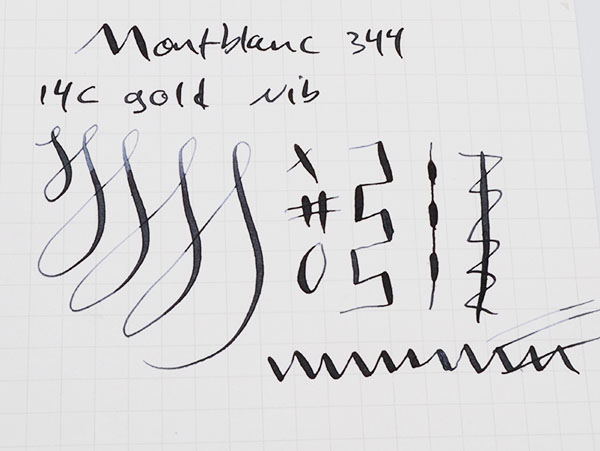 Montblanc 344
14C gold nib
X
#
O